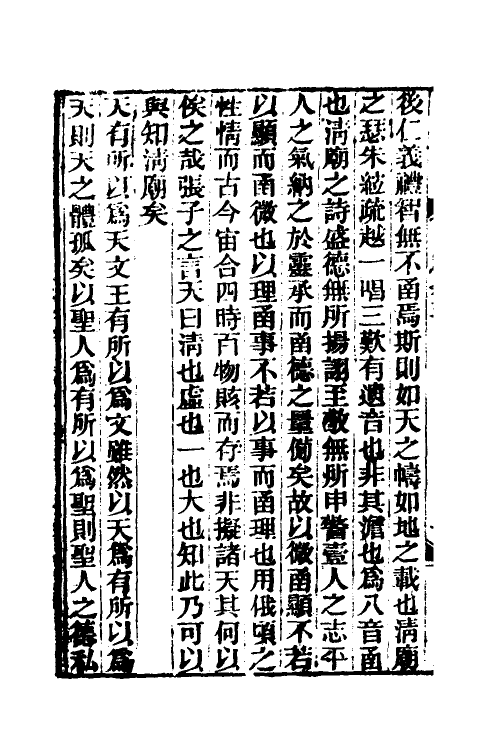 後仁義禮智無不函焉斯則如天之幬如地之載也清廟
之瑟朱絃疏越一唱三歎有遺音也非其澹也爲八音函
也清廟之詩盛德無所揚詡至敬無所申警壹人之志平
人之氣納之於靈承而函德之量備矣故以微函顯不若
以顯而函微也以理函事不若以事而函理也用俄頃之
性情而古今宙合四時百物賅而存焉非擬諸天其何以
俟之哉張子之言天曰清也虛也一也大也知此乃可以
與知清廟矣
天有所以爲天文王有所以爲文雖然以天爲有所以爲
天則天之體孤矣以聖人爲有所以爲聖則聖人之德私